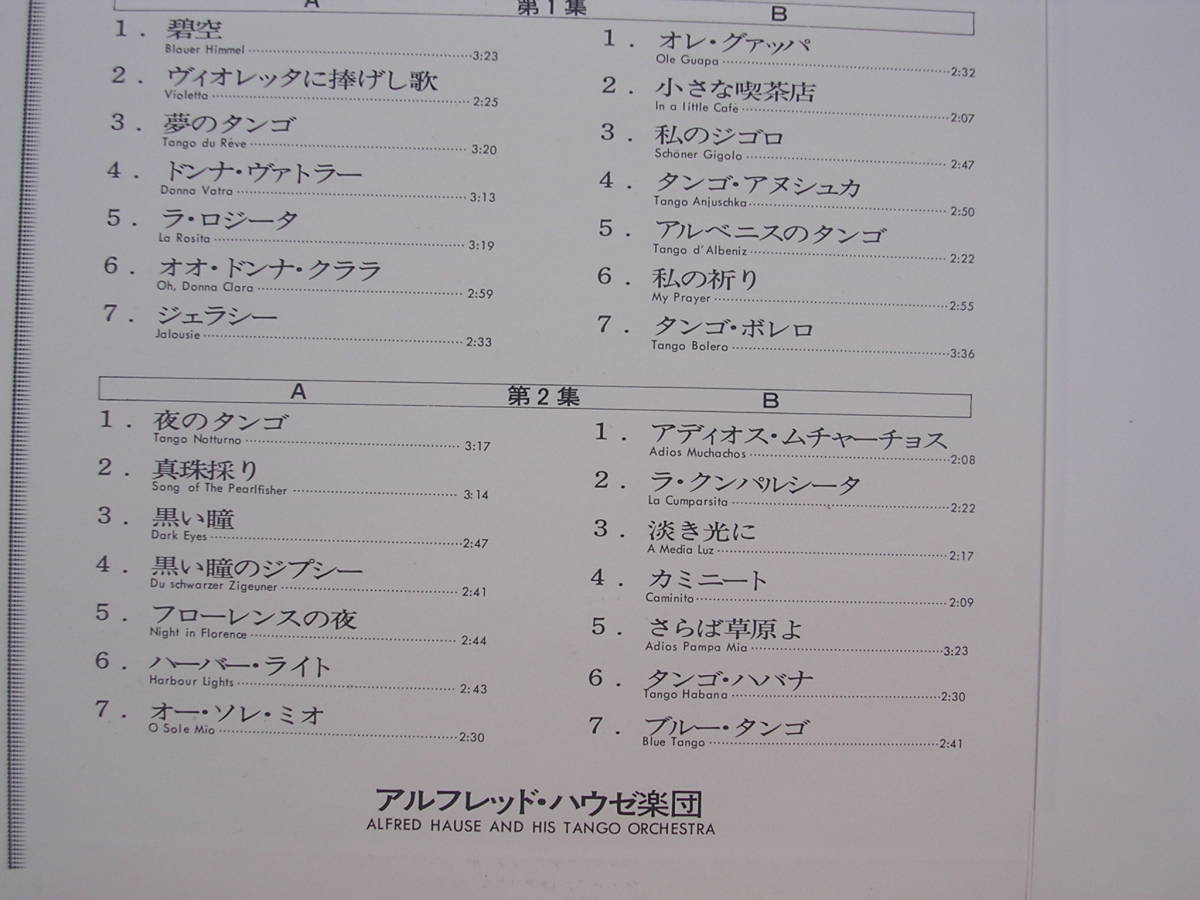 A 第1集 B
1. 碧空
Blauer Himmel 3:23
2. ヴィオレッタに捧げし歌
Violetta 2:25
3. 夢のタンゴ
Tango du Rêve 3:20
4. ドンナ・ヴァトラー
Donna Vatra 3:13
5. ラ・ロジータ
La Rosita 3:19
6. オオ・ドンナ・クララ
Oh, Donna Clara 2:59
7. ジェラシー
Jalousie 2:33
1. オレ・グァッパ
Ole Guapa 2:32
2. 小さな喫茶店
In a little Café 2:07
3. 私のジゴロ
Schöner Gigolo 2:47
4. タンゴ・アヌシュカ
Tango Anjuschka 2:50
5. アルベニスのタンゴ
Tango d'Albeniz 2:22
6. 私の祈り
My Prayer 2:55
7. タンゴ・ボレロ
Tango Bolero 3:36
A 第2集 B
1. 夜のタンゴ
Tango Notturno 3:17
2. 真珠採り
Song of The Pearlfisher 3:14
3. 黒い瞳
Dark Eyes 2:47
4. 黒い瞳のジプシー
Du schwarzer Zigeuner 2:41
5. フローレンスの夜
Night in Florence 2:44
6. ハーバー・ライト
Harbour Lights 2:43
7. オー・ソレ・ミオ
O Sole Mio 2:30
1. アディオス・ムチャーチョス
Adios Muchachos 2:08
2. ラ・クンパルシータ
La Cumparsita 2:22
3. 淡き光に
A Media Luz 2:17
4. カミニート
Caminito 2:09
5. さらば草原よ
Adios Pampa Mia 3:23
6. タンゴ・ハバナ
Tango Habana 2:30
7. ブルー・タンゴ
Blue Tango 2:41
アルフレッド・ハウゼ楽団
ALFRED HAUSE AND HIS TANGO ORCHESTRA